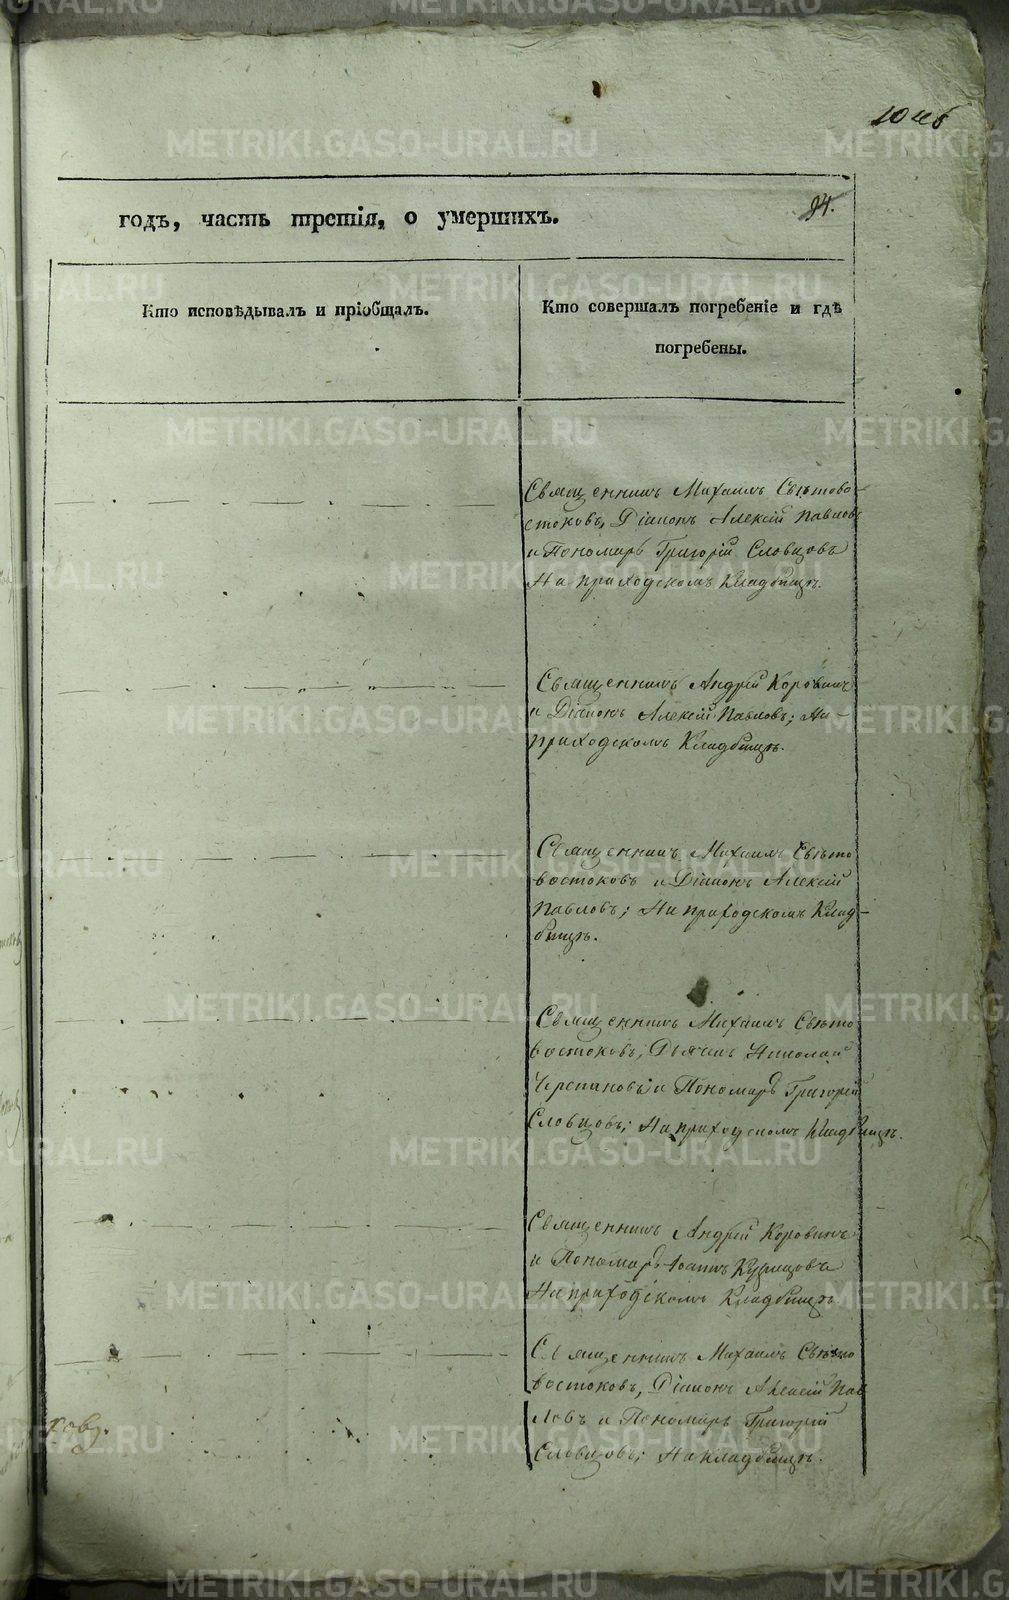 годъ, часть третія, о умершихъ.
34.
Кто исповѣдывалъ и пріобщалъ.
Кто совершалъ погребеніе и гдѣ
погребены.
Священникъ Михаилъ Свѣтово-
стоковъ, Діаконъ Алексій Павловъ
и Пономарь Григорій Словцовъ
На приходскомъ кладбищѣ.
Священникъ Андрей Коровинъ
и Діаконъ Алексій Павловъ; На
приходскомъ Кладбищѣ.
Священникъ Михаилъ Свѣто
востоковъ и Діаконъ Алексій
Павловъ; На приходскомъ Клад-
бищѣ.
Священникъ Михаилъ Свѣто
востоковъ, Дьячекъ Николай
Черепановъ и Пономарь Григорій
Словцовъ; На приходскомъ Кладбищѣ.
Священникъ Андрей Коровинъ
и Пономарь Іоаннъ Кузнецовъ
На приходскомъ Кладбищѣ
Священникъ Михаилъ Свѣто
востоковъ, Діаконъ Алексій Пав
ловъ и Пономарь Григорій
Словцовъ; На кладбищѣ.
METRIKI.GASO-URAL.RU